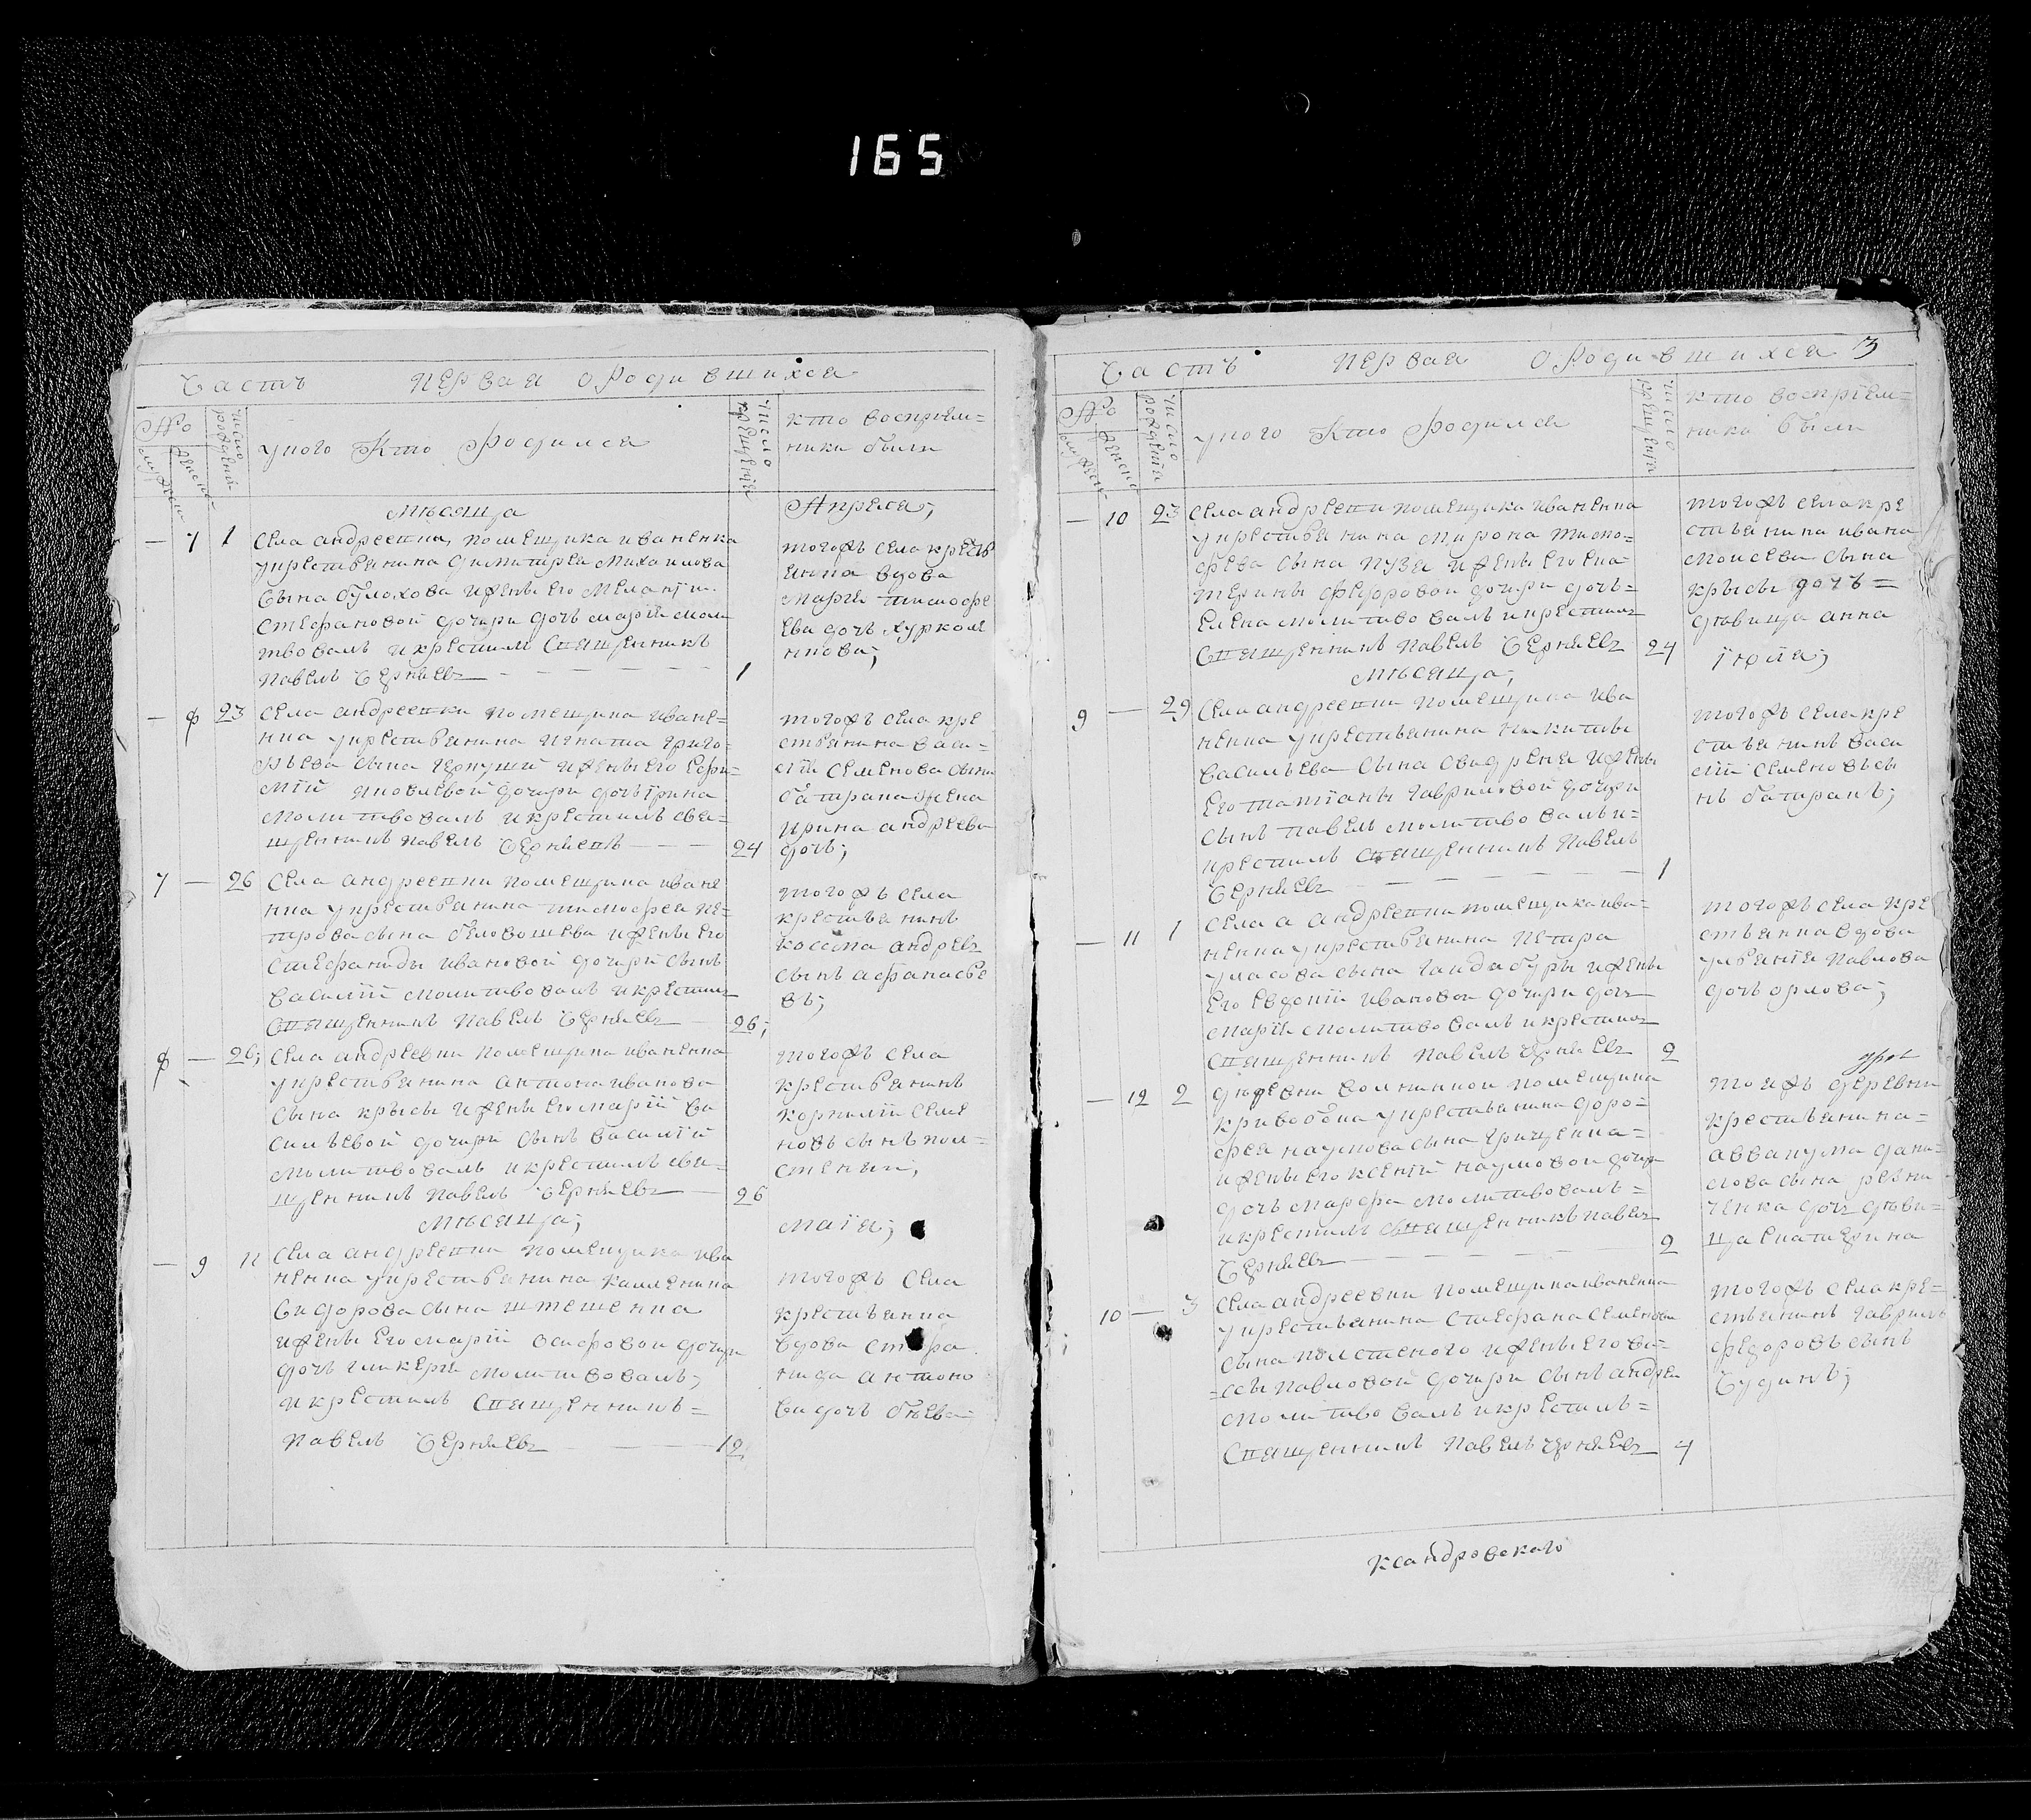 165
Часть первая о родившихся
№
мужеск
женск
число рождений
у кого кто родился
число крещения
кто восприем=
ники были
Месяца
Апреля;
— 7 1 села андреевки, помещика иваненка
у крестьянина димитрея михаилова
сына булохова и жены его меланіи
стефановой дочери дочь марія моли
твовалъ и крестилъ священникъ
павелъ Чернявъ — 1
тогожъ села кресть
вдова
марія тимофе
ева дочь
23 села андреевки помещика иване=
нка у крестьянина игнатиа григо=
рьева сына и жены его ефи=
міи яковлевой дочери дочь ірина
молитвовалъ и крестилъ свя=
щенникъ павелъ — 24
тогожъ села кре
стьянина васи=
лія семенова сына
батирана жена
ирина андреева
дочь;
7 — 26 села андреевки помещика иване
нка у крестьянина тимофея пе=
трова сына и жены его
стефаниды ивановой дочери сынъ
василій молитвовалъ и крестилъ
священникъ павелъ — 26;
тогожъ села
крестьянинъ
косма андреевъ
сынъ афанасье
въ;
— 26; села андреевки помещика иваненка
у крестьянина антона иванова
сына крысы и жены его маріи ва
сильевой дочери сынъ василій
молитвовалъ и крестилъ свя=
щенникъ павелъ — 26
тогожъ села
крестьянинъ
корнилій семе
новъ сынъ пол=
стенкій;
Месяца;
маія;
— 9 11 села андреевки помещика ива
ненка у крестьянина каленика
сидорова сына
и жены его маріи осифовой дочери
дочь гликерія молитвовалъ;
и крестилъ священникъ=
павелъ — 12
тогожъ села
крестьянка
вдова стефа
нида антоно
ва дочь
Часть первая о родившихся 3
№
мужеск
женск
число рождения
у кого кто родился
число крещения
кто восприем=
ники были
— 10 23 села андреевки помещика иваненка
у крестьянина мирона тимо=
феева сына пузя и жены его ека=
терины федоровой дочери дочь=
елена молитвовалъ и крестилъ
священникъ павелъ — 24
тогожъ села кре
стьянина ивана
моисеева сына
крысы дочь=
девица анна
Месяца;
іюля;
9 — 29 села андреевки помещика ива
ненка у крестьянина никиты
васильева сына и жены
его татіаны гавриловой дочери
сынъ павелъ молитвовалъ и=
крестилъ священникъ павелъ
— 1
тогожъ села кре
стьянинъ васи
лій семеновъ сы
нъ батиранъ;
— 11 1 села андреевки помещика ива=
ненка у крестьянина петра
уласова сына гайдабуры и жены
его евдокіи ивановой дочери дочь
марія молитвовалъ и крестилъ
священникъ павелъ — 2
тогожъ села кре
стьянка вдова
уліанія павлова
дочь орлова;
— 12 2 деревни помещика
кривобока у крестьянина доро=
фея наумова сына грищенка=
и жены его ксеніи наумовой дочери
дочь марфа молитвовалъ=
и крестилъ священникъ павелъ
— 2
тоежъ деревни
крестьянина=
аввакума дани=
лова сына резни
ченка дочь деви=
ца екатерина
10 — 3 села андреевки помещика иваненка
у крестьянина стефана семенова
сына полстеного и жены его ва=
=ссы павловой дочери сынъ андрей
молитвовалъ и крестилъ=
священникъ павелъ — 4
тогожъ села кре=
стьянинъ гаврилъ
федоровъ сынъ
ксандровскаго